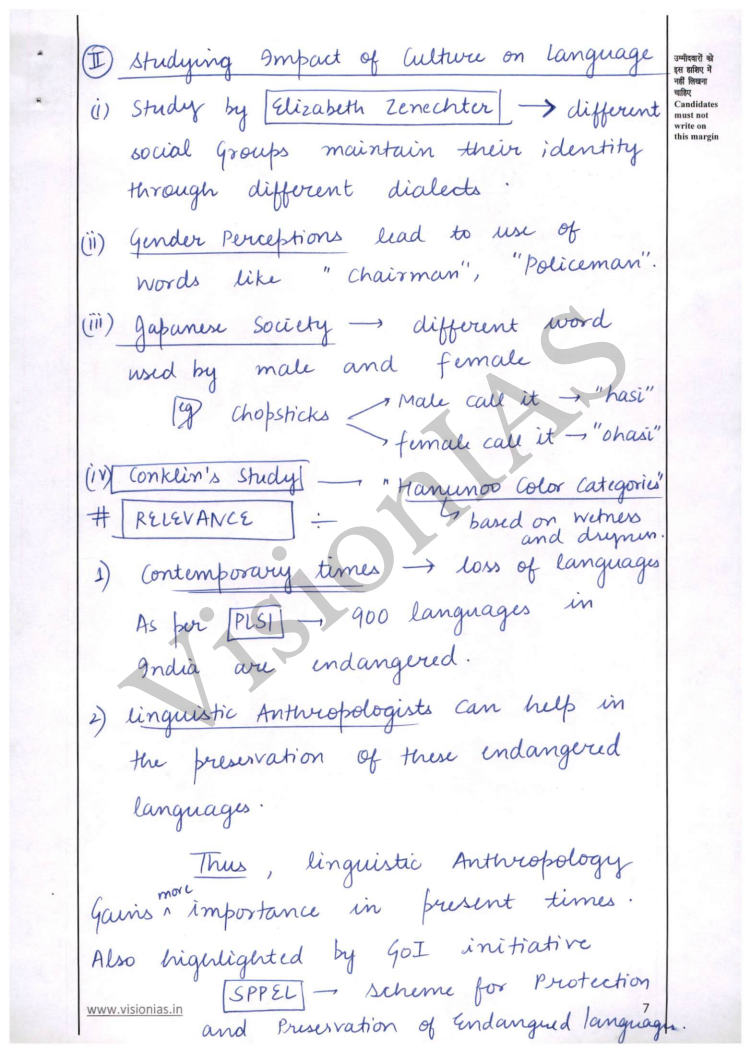 (II) Studying Impact of Culture on Language
(i) Study by Elizabeth Zenechter → different
social Groups maintain their identity
through different dialects.
(ii) Gender Perceptions lead to use of
words like "Chairman", "Policeman".
(iii) Japanese Society → different word
used by male and female
eg Chopsticks → Male call it → "hasi"
→ female call it → "ohasi"
(iv) Conklin's Study → "Hanunoo Color Categories"
↳ based on wetness
and dryness.
# RELEVANCE ÷
1) Contemporary times → loss of languages
As per PLSI → 900 languages in
India are endangered.
2) linguistic Anthropologists can help in
the preservation of these endangered
languages.
Thus, linguistic Anthropology
Gains more importance in present times.
Also highlighted by GOI initiative
SPPEL → Scheme for Protection
and Preservation of Endangued languages.
उम्मीदवारों को
इस हाशिए में
नहीं लिखना
चाहिए
Candidates
must not
write on
this margin
VisionIAS
www.visionias.in
7